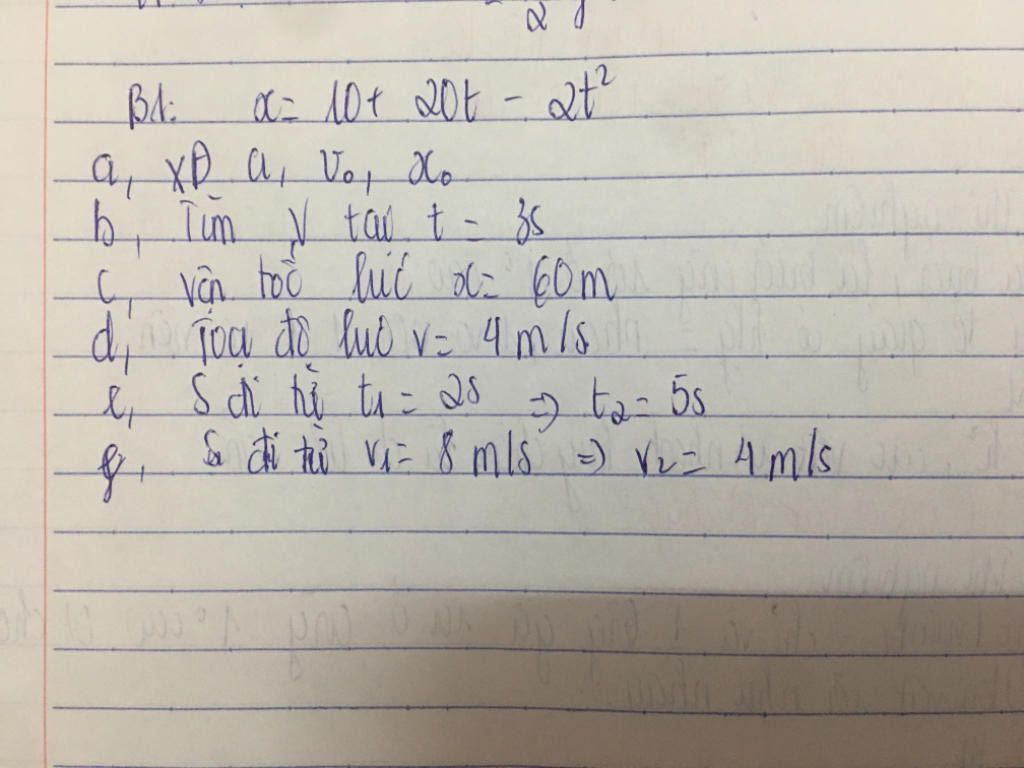 2
B1: x = 10 + 20t - 2t²
a, XĐ a, v₀, x₀
b, Tìm v tại t = 3s
c, vận tốc lúc x = 60m
d, Tọa độ lúc v = 4 m/s
e, S đi từ t₁ = 2s => t₂ = 5s
g, S đi từ v₁ = 8 m/s => v₂ = 4 m/s